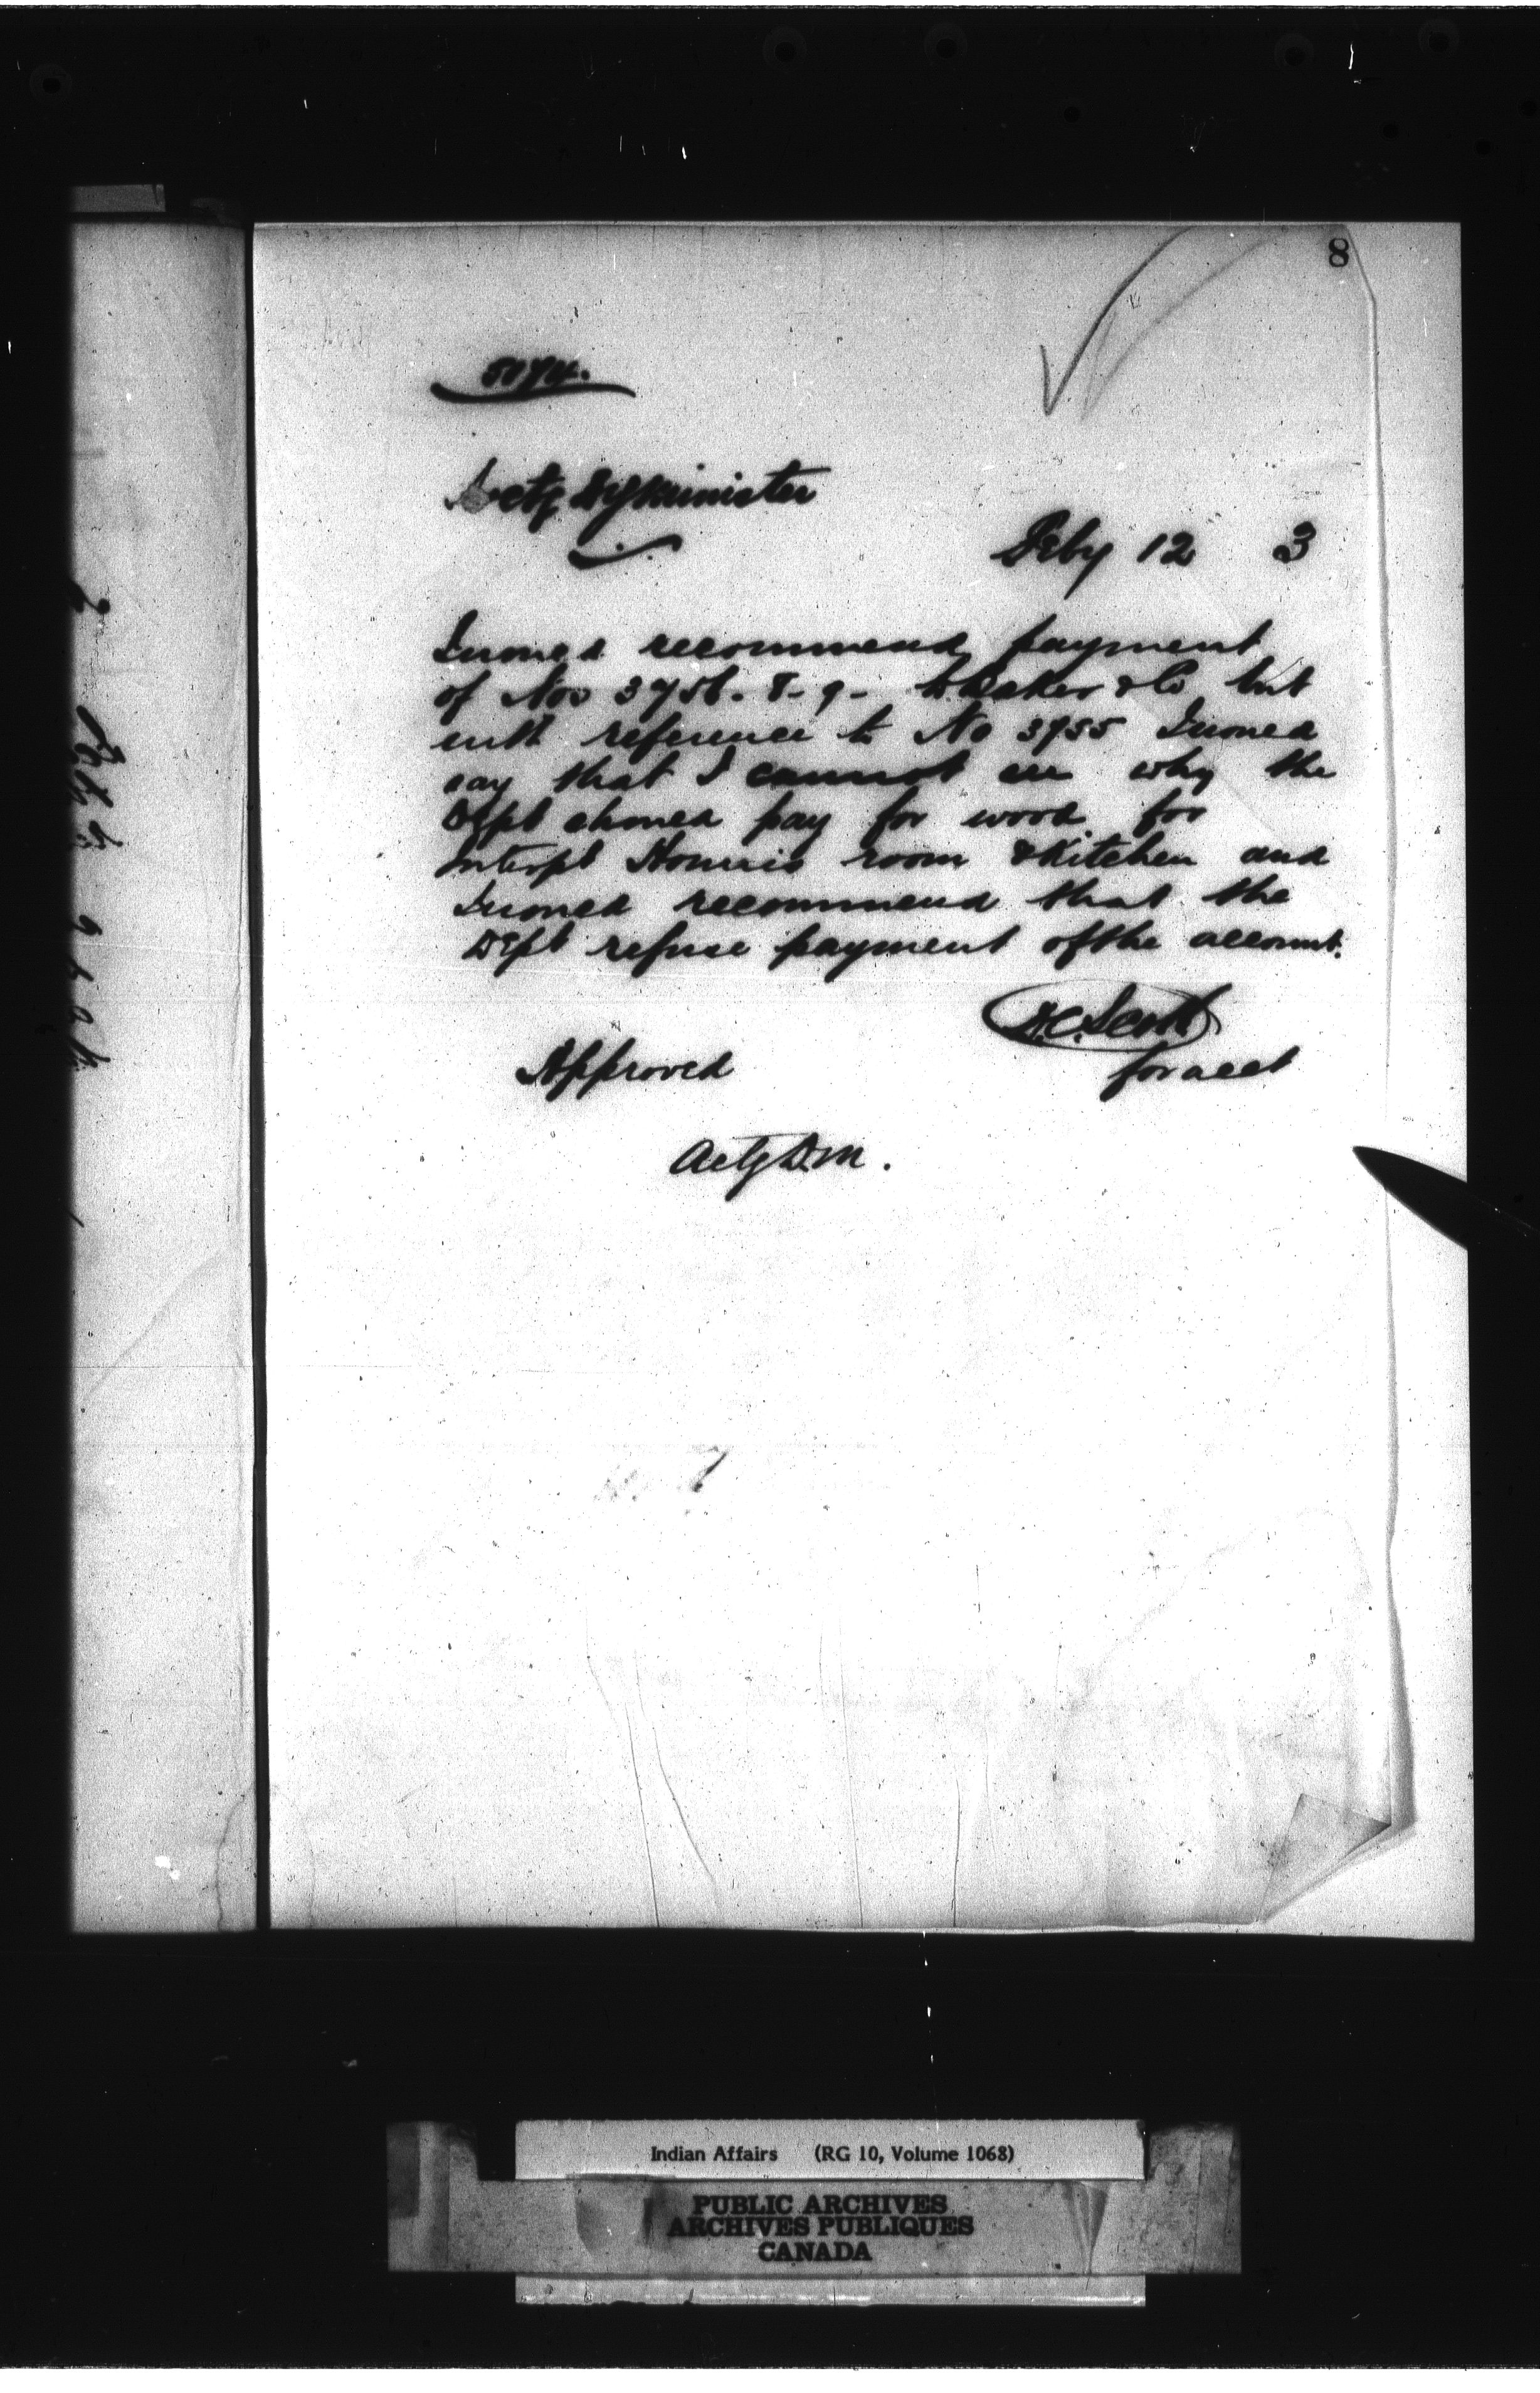 8
5174.
Actg Dy Minister
Feby 12 3
I would recommend payment
of Nos 3756. 8-9- & Co but
with reference to No 3755 I would
say that I cannot see why the
Dept should pay for wood for
Interpt room & Kitchen and
I would recommend that the
Dept refuse payment of the account.
D.C. Scott
for acct
Approved
Actg D.M.
Indian Affairs (RG 10, Volume 1068)
PUBLIC ARCHIVES
ARCHIVES PUBLIQUES
CANADA